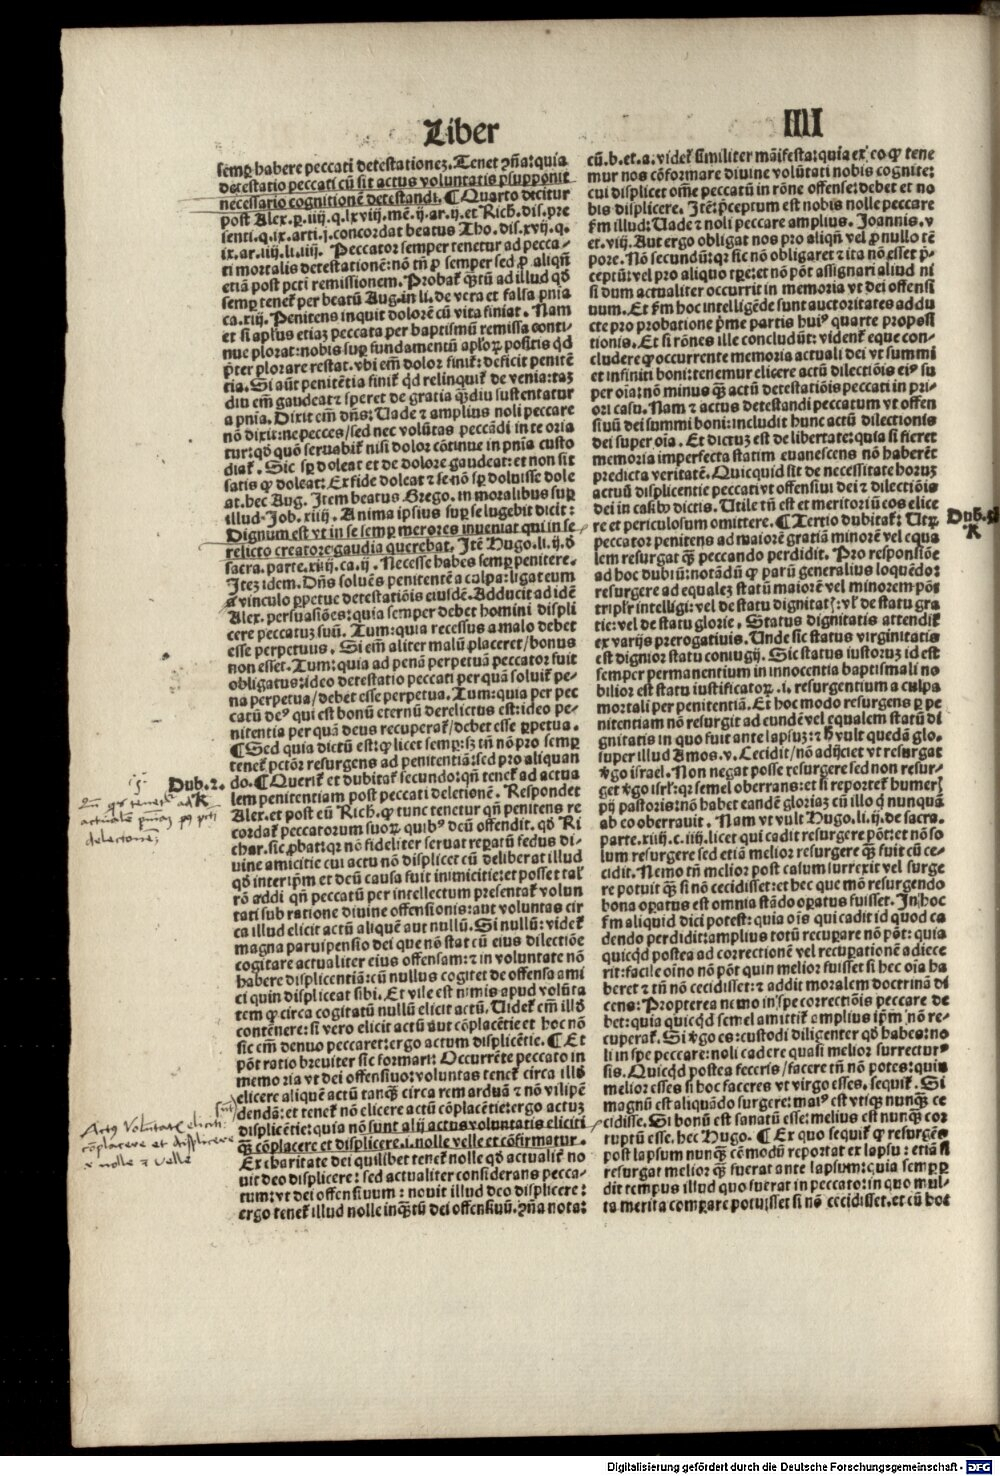 Liber
IIII
semꝑ habere peccati detestationeꝫ. Tenet ꝯña: quia
detestatio peccati cū sit actus voluntatis p̄supponit
necessario cognitionē detestandi. ¶ Quarto dicitur
post Alex. ꝑ. iiij. q. lxviij. mē. ij. ar. ij. et Rich. dis. pre
senti. q. ix. arti. j. concordat beatus Tho. dis. xvij. q.
ix. ar. iiij. li. iiij. Peccator semper tenetur ad pecca-
ti mortalis detestationē: nō tn̄ ꝓ semper sed ꝓ aliqn̄
etiā post pcti remissionem. Probat̄ q̄tū ad illud qđ
semꝑ tenet̄ per beatū Aug. in li. de vera et falsa pn̄ia
ca. xiij. Penitens inquit dolorē cū vita finiat. Nam
et si apl̄us etiaꝫ peccata per baptismū remissa conti-
nue plorat: nobis suꝑ fundamentū apl̄oꝝ positis qđ
p̄ter plorare restat. vbi em̄ dolor finit̄: deficit penitē
tia. Si aūt penitētia finit̄ qđ relinquit̄ de venia: taꝫ
diu em̄ gaudeat ⁊ speret de gratia q̄ꝫdiu sustentatur
a pn̄ia. Dixit em̄ dn̄s: Uade ⁊ amplius noli peccare
nō dixit: ne pecces / sed nec volūtas peccādi in te oria
tur: qđ quō seruabit̄ nisi dolor cōtinue in pn̄ia custo
diat̄. Sic sꝑ doleat et de dolore gaudeat: et non sit
satis ꝙ doleat: Ex fide doleat ⁊ se nō sꝑ doluisse dole
at. hec Aug. Item beatus Grego. in moralibus suꝑ
illud Job. xiiij. Anima ipsius suꝑ se lugebit dicit:
Dignum est vt in se semꝑ merores inueniat qui in se
relicto creatore gaudia querebat. Itē Hugo. li. ij. đ
sacra. parte. xiiij. ca. ij. Necesse habes semꝑ penitere.
Iteꝫ idem. Dn̄s soluēs penitentē a culpa: ligat eum
vinculo ꝑpetue detestatiōis eiusdē. Adducit ad idē
Alex. persuasiōes: quia semper debet homini displi
cere peccatuꝫ suū. Tum: quia recessus a malo debet
esse perpetuus. Si em̄ aliter malū placeret / bonus
non esset. Tum: quia ad penā perpetuā peccator fuit
obligatus: ideo detestatio peccati per quā soluit̄ pe-
na perpetua / debet esse perpetua. Tum: quia per pec
catū deꝰ qui est bonū eternū derelictus est: ideo pe-
nitentia per quā deus recuperat̄ / debet esse ꝑpetua.
¶ Sed quia dictū est: ꝙ licet semꝑ: sꝫ tn̄ nō pro semꝑ
tenet̄ pctōr resurgens ad penitentiā: sed pro aliquan
do. ¶ Querit̄ et dubitat̄ secundo: qn̄ tenet̄ ad actua
lem penitentiam post peccati deletionē. Respondet
Alex. et post eū Rich. ꝙ tunc tenetur qn̄ penitens re
cordat̄ peccatorum suoꝝ quibꝰ deū offendit. qđ Ri
char. sic ꝓbat: qꝛ nō fideliter seruat reꝑatū fedus di-
uine amicitie cui actu nō displicet cū deliberat illud
qđ inter ip̄m et deū causa fuit inimicitie: et posset tal̄
rō addi qn̄ peccatū per intellectum presentat̄ volun
tati sub ratione diuine offensionis: aut voluntas cir
ca illud elicit actū aliquē aut nullū. Si nullū: videt̄
magna paruipensio dei que nō stat cū eius dilectiōe
cogitare actualiter eius offensam: ⁊ in voluntate nō
habere displicentiā: cū nullus cogitet de offensa ami
ci quin displiceat sibi. Et vile est nimis apud volūta
tem ꝙ circa cogitatū nullū elicit actū. Uidet̄ em̄ illđ
contēnere: si vero elicit actū aut cōplacētie et hoc nō
sic em̄ denuo peccaret: ergo actum displicētie. ¶ Et
pōt ratio breuiter sic formari: Occurrēte peccato in
memoria vt dei offensiuo: voluntas tenet̄ circa illđ
elicere aliquē actū tanq̄ꝫ circa rem arduā ⁊ nō vilipē
dendā: et tenet̄ nō elicere actū cōplacētie: ergo actuꝫ
displicētie: quia nō sunt alij actus voluntatis eliciti
q̄ꝫ cōplacere et displicere. i. nolle velle et cōfirmatur.
Ex charitate dei quilibet tenet̄ nolle qđ actualit̄ no
uit deo displicere: sed actualiter considerans pecca-
tum: vt dei offensiuum: nouit illud deo displicere:
ergo tenet̄ illud nolle inq̄tū dei offensiuū. ꝯn̄a nota:
Dub. 2.
R
actualē pn̄iaꝫ
Actꝰ Voluntatꝭ eliciti
cōplacere et displicere
nolle ⁊ velle
cū. b. et. a. videt̄ similiter māifesta: quia ex eo ꝙ tene
mur nos cōformare diuine volūtati nobis cognite:
cui displicet om̄e peccatū in rōne offense: debet et no
bis displicere. Itē: p̄ceptum est nobis nolle peccare
ẜm illud: Uade ⁊ noli peccare amplius. Joannis. v
et. viij. Aut ergo obligat nos pro aliqn̄ vel ꝓ nullo tē
pore. Nō secundū: qꝛ sic nō obligaret ⁊ ita nō esset p̄-
ceptū: vel pro aliquo tp̄re: et nō pōt assignari aliud ni
si dum actualiter occurrit in memoria vt dei offensi
uum. Et ẜm hoc intelligēde sunt auctoritates addu
cte pro probatione p̄me partis huiꝰ quarte proposi
tionis. Et si rōnes ille concludūt: vident̄ eque con-
cludere ꝙ occurrente memoria actuali dei vt summi
et infiniti boni: tenemur elicere actū dilectiōis eiꝰ su
per oīa: nō minus q̄ꝫ actū detestatiōis peccati in pri-
ori casu. Nam ⁊ actus detestandi peccatum vt offen
siuū dei summi boni: includit hunc actū dilectionis
dei super oīa. Et dictuꝫ est de libertate: quia si fieret
memoria imperfecta statim euanescens nō haberēt
predicta veritatē. Quicquid sit de necessitate horuꝫ
actuū displicentie peccati vt offensiui dei ⁊ dilectiōis
dei in casibꝰ dictis. Utile tn̄ est et meritoriū eos elice
re et periculosum omittere. ¶ Tertio dubitat̄: Utꝝ
peccator penitens ad maiorē gratiā minorē vel equa
lem resurgat q̄ꝫ peccando perdidit. Pro responsiōe
ad hoc dubiū: notādū ꝙ parū generalius loquēdo:
resurgere ad equaleꝫ statū maiorē vel minorem pōt
tripl̄r intelligi: vel de statu dignitatꝭ: vl̄ de statu gra
tie: vel de statu glorie. Status dignitatis attendit̄
ex varijs prerogatiuis. Unde sic status virginitatis
est dignior statu coniugij. Sic status iustoruꝫ id est
semper permanentium in innocentia baptismali no
bilior est statu iustificatoꝝ. i. resurgentium a culpa
mortali per penitentiā. Et hoc modo resurgens ꝑ pe
nitentiam nō resurgit ad eundē vel equalem statū di
gnitatis in quo fuit ante lapsuꝫ: ⁊ ħ vult quedā glo.
super illud Amos. v. Cecidit / nō adijciet vt resurgat
v̄go israel. Non negat posse resurgere sed non resur-
get v̄go isrl̄: qꝛ semel oberrans: et si reportet̄ humerꝭ
pij pastoris: nō habet eandē gloriaꝫ cū illo q̄ nunquā
ab eo oberrauit. Nam vt vult Hugo. li. ij. de sacra.
parte. xiiij. c. iiij. licet qui cadit resurgere pōt: et nō so
lum resurgere sed etiā melior resurgere q̄ꝫ fuit cū ce-
cidit. Nemo tn̄ melior post casum surrexit vel surge
re potuit q̄ꝫ si nō cecidisset: et hec que mō resurgendo
bona oꝑatus est omnia stādo oꝑatus fuisset. In hoc
ẜm aliquid dici potest: quia oīs qui cadit id quod ca
dendo perdidit: amplius totū recuꝑare nō pōt: quia
quicqđ postea ad correctionē vel recuꝑationē adiece
rit: facile oīno nō pōt quin melior fuisset si hec oīa ha
beret ⁊ tn̄ nō cecidisset: ⁊ addit moralem doctrinā di
cens: Propterea nemo in spe correctiōis peccare de
bet: quia quicqđ semel amittit̄ amplius ip̄m nō re-
cuperat̄. Si v̄go es: custodi diligenter qđ habes: no
li in spe peccare: noli cadere quasi melior surrecturꝰ
sis. Quicqđ postea feceris / facere tn̄ nō potes: quin
melior esses si hoc faceres vt virgo esses. sequit̄. Si
magnū est aliquādo surgere: maiꝰ est vtiqꝫ nunq̄ꝫ ce
cidisse. Si bonū est sanatū esse: melius est nunq̄ꝫ cor
ruptū esse. hec Hugo. ¶ Ex quo sequit̄ ꝙ resurgēs
post lapsum nunq̄ꝫ cōmodū reportat ex lapsu: etiā si
resurgat melior q̄ꝫ fuerat ante lapsum: quia semꝑ ꝑ
dit tempus illud quo fuerat in peccato: in quo mul-
ta merita comparare potuisset si nō cecidisset. et cū hoc
Dub. 3
R
Digitalisierung gefördert durch die Deutsche Forschungsgemeinschaft - DFG